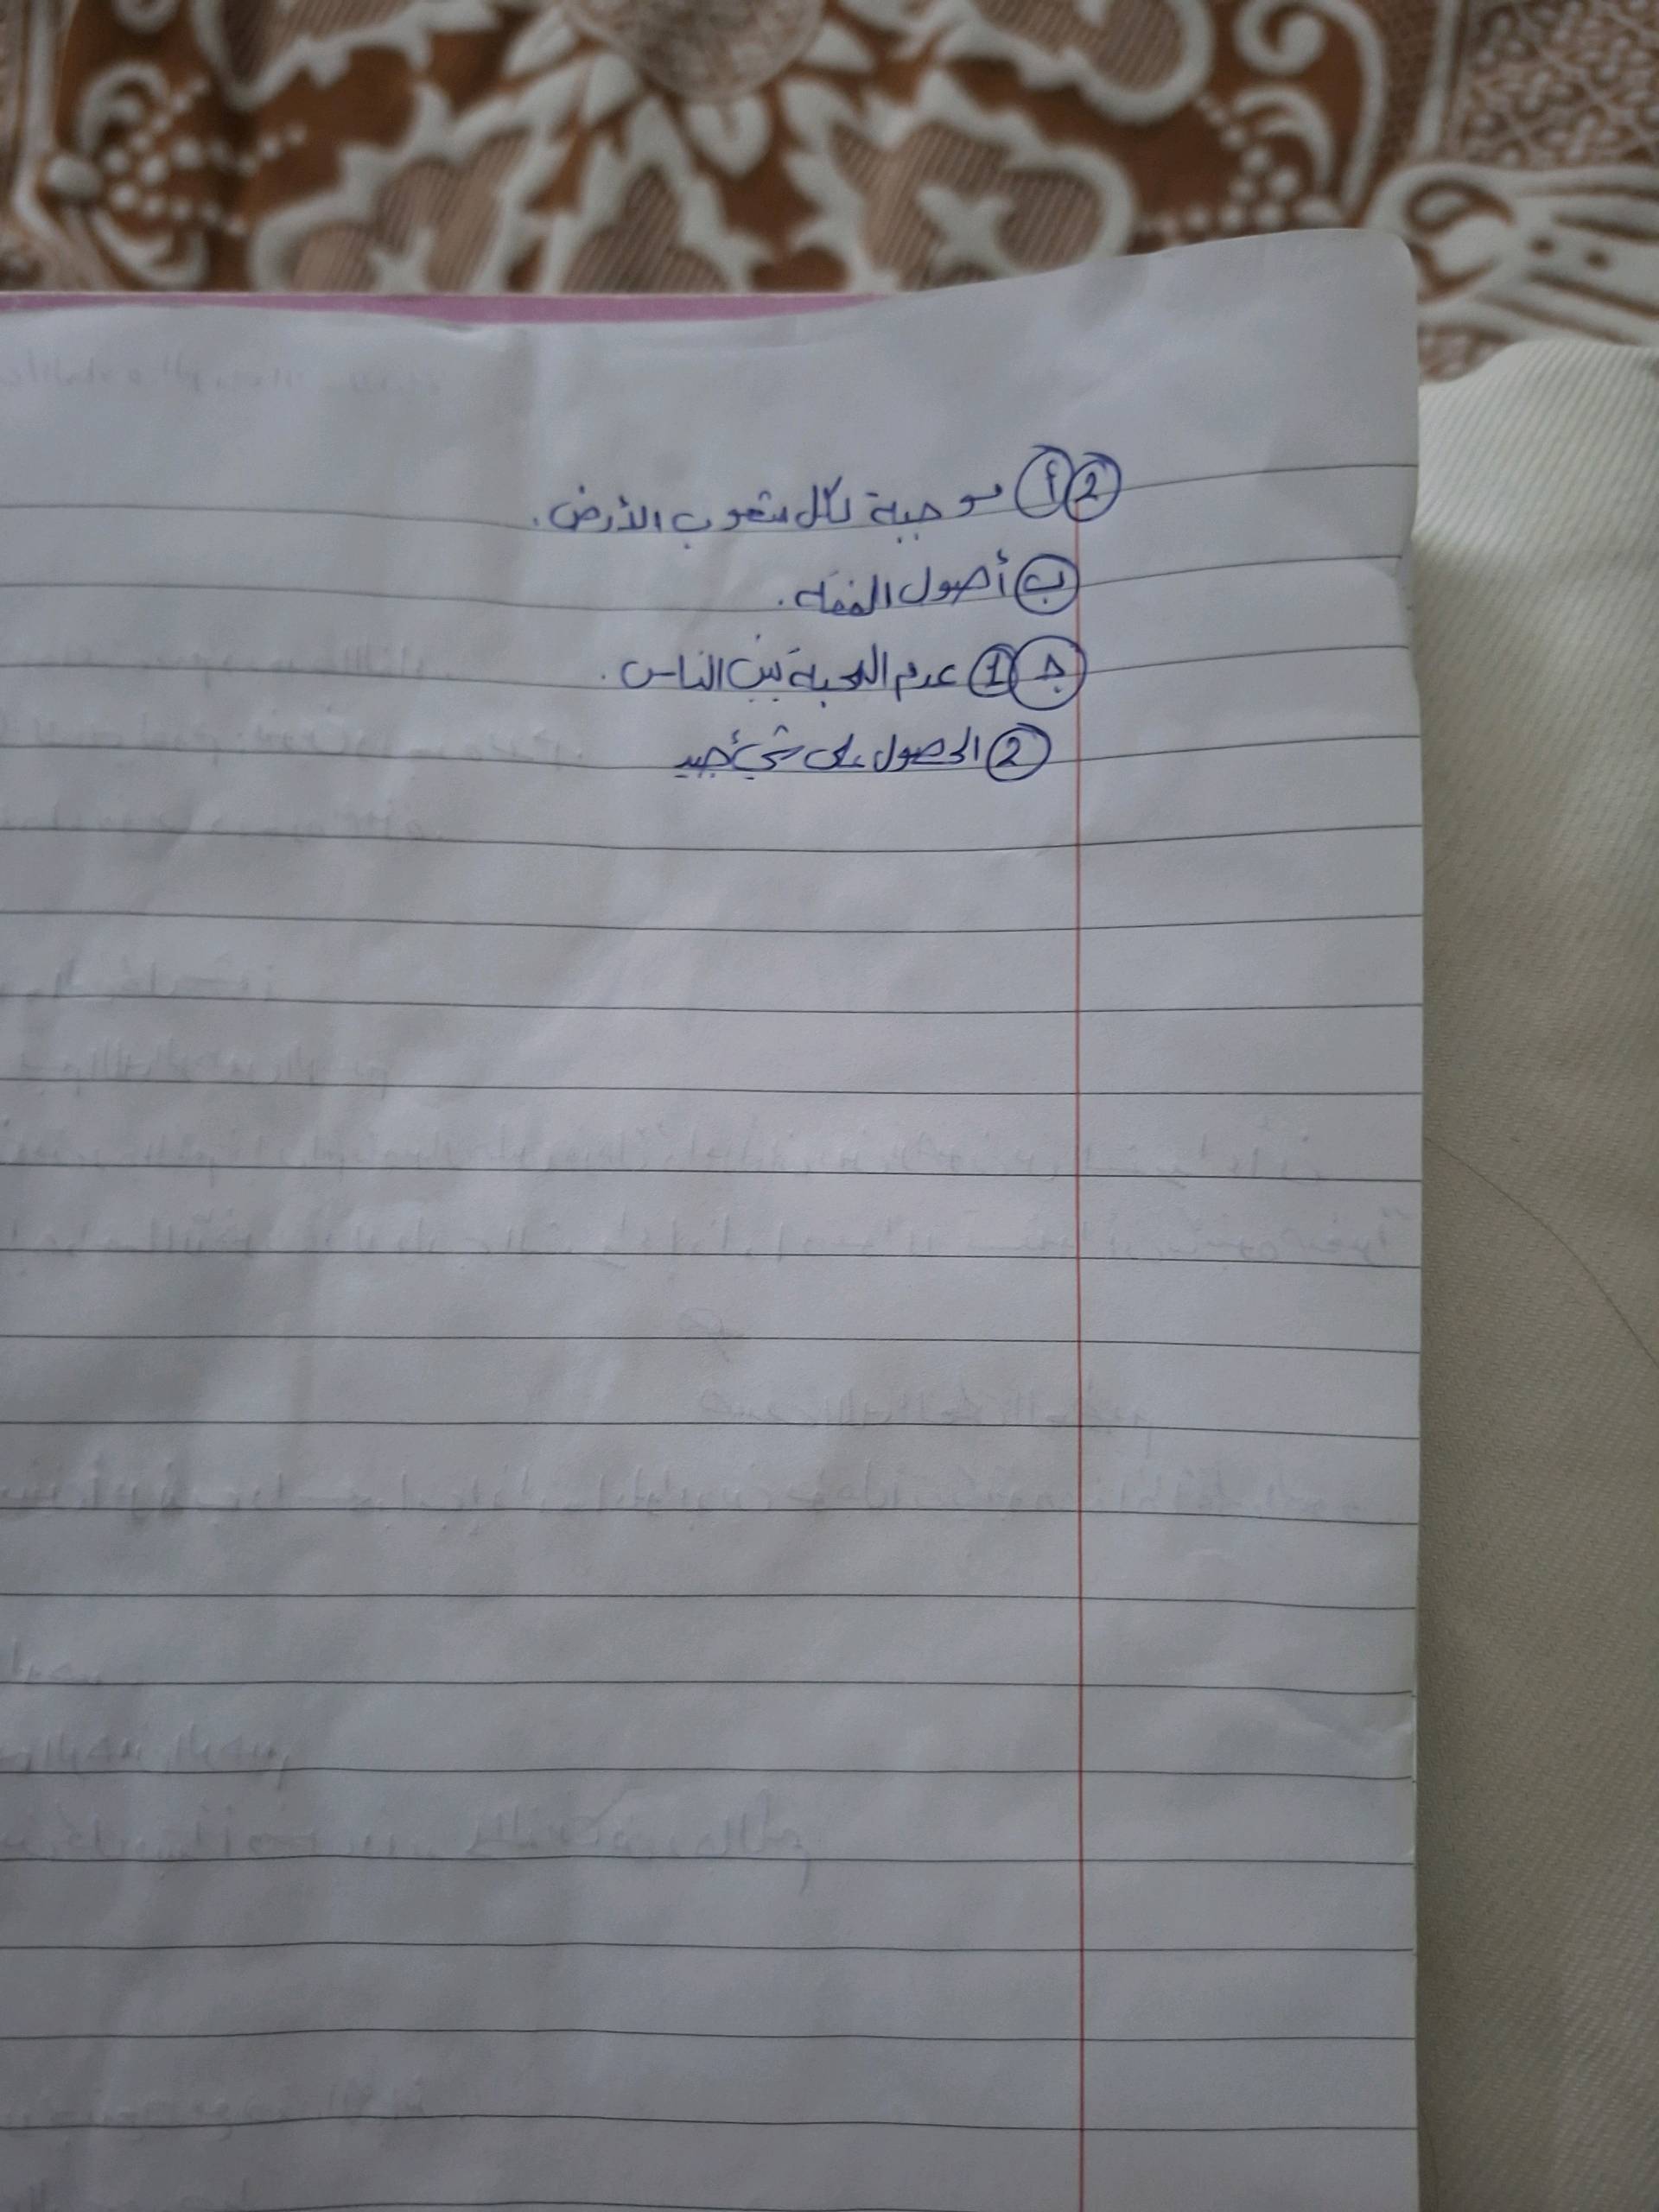 2 أ موجهة لكل شعوب الأرض.
ب أصول الفقه.
جـ 1 عدم المحبة بين الناس.
2 الحصول على شيء جيد